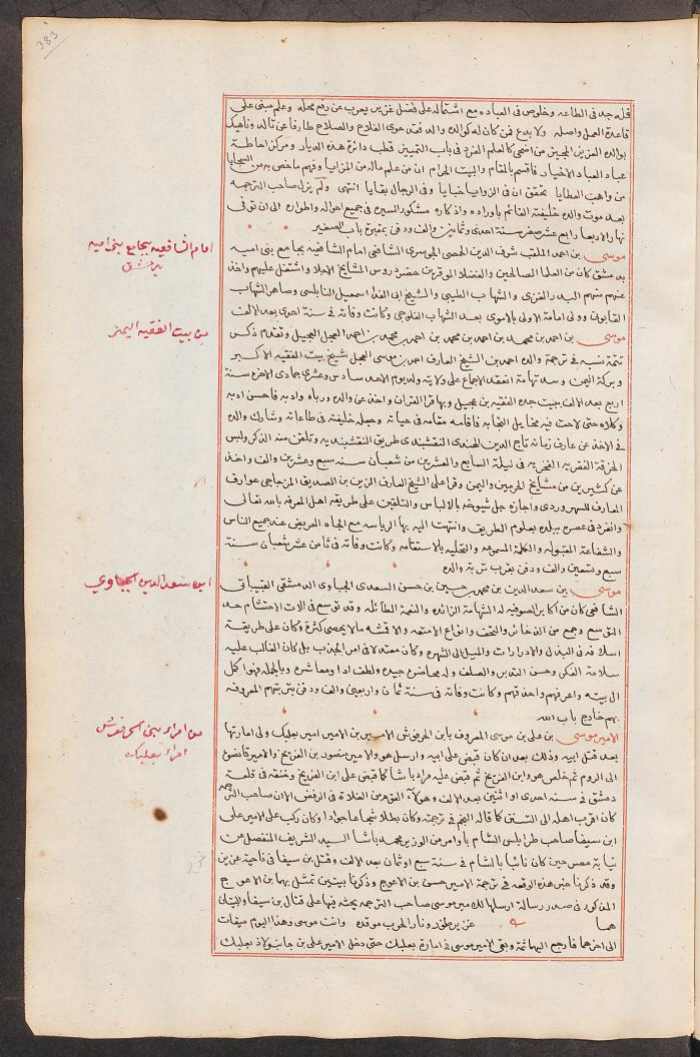 383
قلة جد في الطاعه وخلوص في العباده مع اشتماله على فضل غزير يعرب عن رفع محله وعلم مبنى على
قاعدة العمل واصله ولا بدع فمن كان له كوالده والد فقد حوى الفلاح والصلاح طارفا عن تالد وناهيك
بوالده العزيز بن المجيد من اضحى كالعلم الفرد في باب التمييز قطب دائرة هذه الديار ومركز احاطة
عباد العباد الاخيار فاقسم بالمقام والبيت الحرام ان من علم ماله من المزايا وفهم ماخص به من السجايا
من واهب العطايا تحقق ان في الزوايا خبايا وفي الرجال بقايا انتهى ولم يزل صاحب الترجمه
بعد موت والده خليفته القائم باوراده واذكاره مشكور السيره في جميع احواله واطواره الى ان توفى
نهار الاربعا رابع عشر صفر سنة احدى وثمانين والف ودفن بمقبرة باب الصغير
موسى بن احمد الملقب شرف الدين الحمصي الشافعي امام الشافعيه بجامع بنى اميه
بدمشق كان من العلما الصالحين والفضلا الموقرين حضر دروس المشايخ الاجلا واشتغل عليهم واخذ
عنهم منهم البدر الغزى والشهاب الطيبى والشيخ ابى الفدا اسمعيل النابلسى وصاهر الشهاب
القابونى وولى امامة الاولى بالاموى بعد الشهاب الفلوجى وكانت وفاته فى سنة احدى بعد الالف
موسى بن احمد بن محمد بن احمد بن محمد بن احمد بن محمد بن احمد العجيل وتقدم ذكر
تتمة نسبه فى ترجمة والده احمد بن الشيخ العارف احمد بن موسى العجيل شيخ بيت الفقيه الاكبر
وبركة اليمن وسند تهامة انعقد الاجماع على ولايته ولد يوم الاحد سادس وعشرى جمادى الاخره سنة
اربع بعد الالف ببيت جده الفقيه بن عجيل وبها قرا القران واخذ عن والده ورباه وادبه فاحسن ادبه
وكلاه حتى لاحت فيه مخايل النجابه فاقامه مقامه فى حياته وجعله خليفته فى طاعاته وشارك والده
فى الاخذ عن عارف زمانه تاج الدين الهندى النقشبندى طريق النقشبنديه وتلقن منه الذكر ولبس
الخرقة الفقريه الفخريه فى ليلة السابع والعشرين من شعبان سنه سبع وعشرين والف واخذ
عن كثيرين من مشايخ الحرمين واليمن وقرا على الشيخ العارف الزين بن الصديق المزجاجى عوارف
المعارف للسهروردى واجازه جل شيوخه بالالباس والتلقين على طريقة اهل المعرفه بالله تعالى
وانفرد فى عصره ببلده بعلوم الطريق وانتهت اليه بها الرياسه مع الجاه العريض عند جميع الناس
والشفاعة المقبوله والكلمة المسموعه والتحليه بالاستقامه وكانت وفاته فى ثامن عشر شعبان سنة
سبع وتسعين والف ودفن بقرب تربة والده
موسى بن سعد الدين بن محمد بن حسين بن حسن السعدى الجباوى الدمشقى القبيباتى
الشافعى كان من اكابر الصوفيه له الشهامة الزائده والنعمة الطائله وقد توسع فى الات الاحتشام حد
التوسع وجمع من الذخائر والتحف وانواع الامتعه والاقمشه ما لا يحصى كثرة وكان على طريقة
اسلافه فى البذل والادرارات والميل الى الشهره وكان معتدلا فى امر الجذب بل كان الغالب عليه
سلامة الفكر وحسن التدبر والصلف وله محاضره جيده ولطف ادا ومعاشره وبالجمله فهو اكمل
ال بيته واعرفهم واحذقهم وكانت وفاته فى سنة ثمان واربعين والف ودفن بتربتهم المعروفه
بهم خارج باب الله
الامير موسى بن على بن موسى المعروف بابن الحرفوش الامير بن الامير امير بعلبك ولى امارتها
بعد قتل ابيه وذلك بعد ان كان قبض على ابيه وارسل هو والامير منصور بن الفريخ والامير قانصوه
الى الروم ثم خلص هو وابن الفريخ ثم قبض عليه مراد باشا كما قبض على ابن الفريخ وخنقه فى قلعة
دمشق فى سنه احدى او اثنين بعد الالف وهؤلاء القوم من الغلاة فى الرفض الا ان صاحب الترجمه
كان اقرب اهله الى التسنن كما قاله النجم فى ترجمته وكان بطلا شجاعا جوادا وكان ركب على الامير على
ابن سيفا صاحب طرابلس الشام باوامر من الوزير محمد باشا السيد الشريف المنفصل عن
نيابة مصر حين كان نائبا بالشام فى سنة سبع او ثمان بعد الالف وقتل بن سيفا فى ناحية عزير
وقد ذكرنا خبر هذه الوقعه فى ترجمة الامير حسن بن الاعوج وذكرنا بيتين تمثل بهما بن الاعوج
المذكور فى صدر رسالة ارسلها للامير موسى صاحب الترجمه يحثه فيها على قتال بن سيفا والبيتان
هما غزير طور ونار الحرب موقده وانت موسى وهذا اليوم ميقات
الى اخرهما فارجع اليهما ثمة وبقى الامير موسى فى امارة بعلبك حتى دخل الامير على بن جانبولاذ بعلبك
امام الشافعيه بجامع بنى اميه
بدمشق
من بيت الفقيه اليمن
ابن سعد الدين الجباوي
من امراء بنى الحرفوش
امراء بعلبك